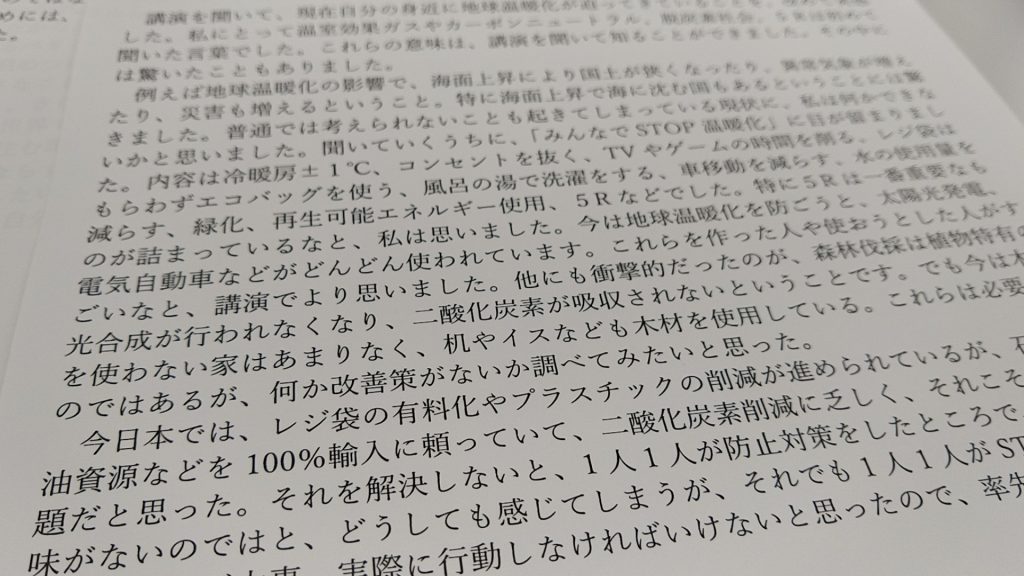 めには、
た。
講演を聞いて、現在自分の身近に地球温暖化が迫ってきていることを、改めて実感
した。私にとって温室効果ガスやカーボンニュートラル、脱炭素社会、5Rは初めて
聞いた言葉でした。これらの意味は、講演を聞いて知ることができました。その中に
は驚いたこともありました。
例えば地球温暖化の影響で、海面上昇により国土が狭くなったり、異常気象が増え
たり、災害も増えるということ。特に海面上昇で海に沈む国もあるということには驚
きました。普通では考えられないことも起きてしまっている現状に、私は何かできな
いかと思いました。聞いていくうちに、「みんなでSTOP 温暖化」に目が留まりまし
た。内容は冷暖房±1℃、コンセントを抜く、TVやゲームの時間を削る、レジ袋は
もらわずエコバッグを使う、風呂の湯で洗濯をする、車移動を減らす、水の使用量を
減らす、緑化、再生可能エネルギー使用、5Rなどでした。特に5Rは一番重要なも
のが詰まっているなと、私は思いました。今は地球温暖化を防ごうと、太陽光発電、
電気自動車などがどんどん使われています。これらを作った人や使おうとした人がす
ごいなと、講演でより思いました。他にも衝撃的だったのが、森林伐採は植物特有の
光合成が行われなくなり、二酸化炭素が吸収されないということです。でも今は木
を使わない家はあまりなく、机やイスなども木材を使用している。これらは必要
のではあるが、何か改善策がないか調べてみたいと思った。
今日本では、レジ袋の有料化やプラスチックの削減が進められているが、石
油資源などを100%輸入に頼っていて、二酸化炭素削減に乏しく、それこそ
題だと思った。それを解決しないと、1人1人が防止対策をしたところで
味がないのではと、どうしても感じてしまうが、それでも1人1人がST
実際に行動しなければいけないと思ったので、率先